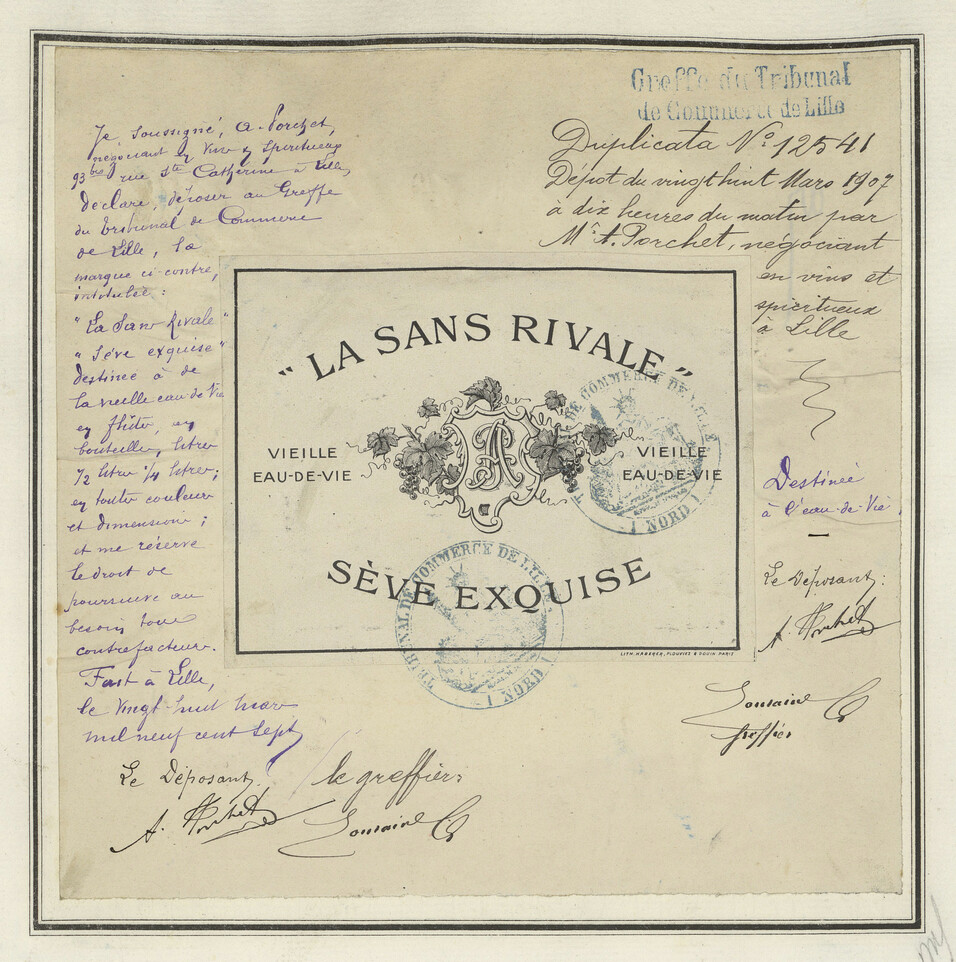 Je soussigné, A. Porchet,
négociant en Vins & Spiritueux
93 bis rue Ste Catherine à Lille,
déclare, déposer au Greffe
du tribunal de Commerce
de Lille, la
marque ci-contre,
intitulée :
"La Sans Rivale"
"Sève exquise"
destinée à de
la vieille eau-de-Vie
en flûtes, en
bouteilles, litres
1/2 litres 1/4 litres;
en toutes couleurs
et dimensions;
et me réserve
le droit de
poursuivre au
besoin tous
contrefacteurs.
Fait à Lille,
le vingt-huit mars
mil neuf cent sept
Le Déposant,
A. Porchet
le greffier:
Greffe du Tribunal
de Commerce de Lille
Duplicata No 12541
Dépot du vingt huit Mars 1907
à dix heures du matin par
Mr A. Porchet, négociant
en vins et
spiritueux
à Lille
"LA SANS RIVALE"
VIEILLE
EAU-DE-VIE
VIEILLE
EAU-DE-VIE
SÈVE EXQUISE
LITH. HABERER, PLOUVIEZ & GOUIN PARIS
TRIBUNAL DE COMMERCE DE LILLE
(NORD)
DE COMMERCE DE LILLE
(NORD)
Destinée
à l'eau-de-Vie
Le Déposant:
A. Porchet
greffier